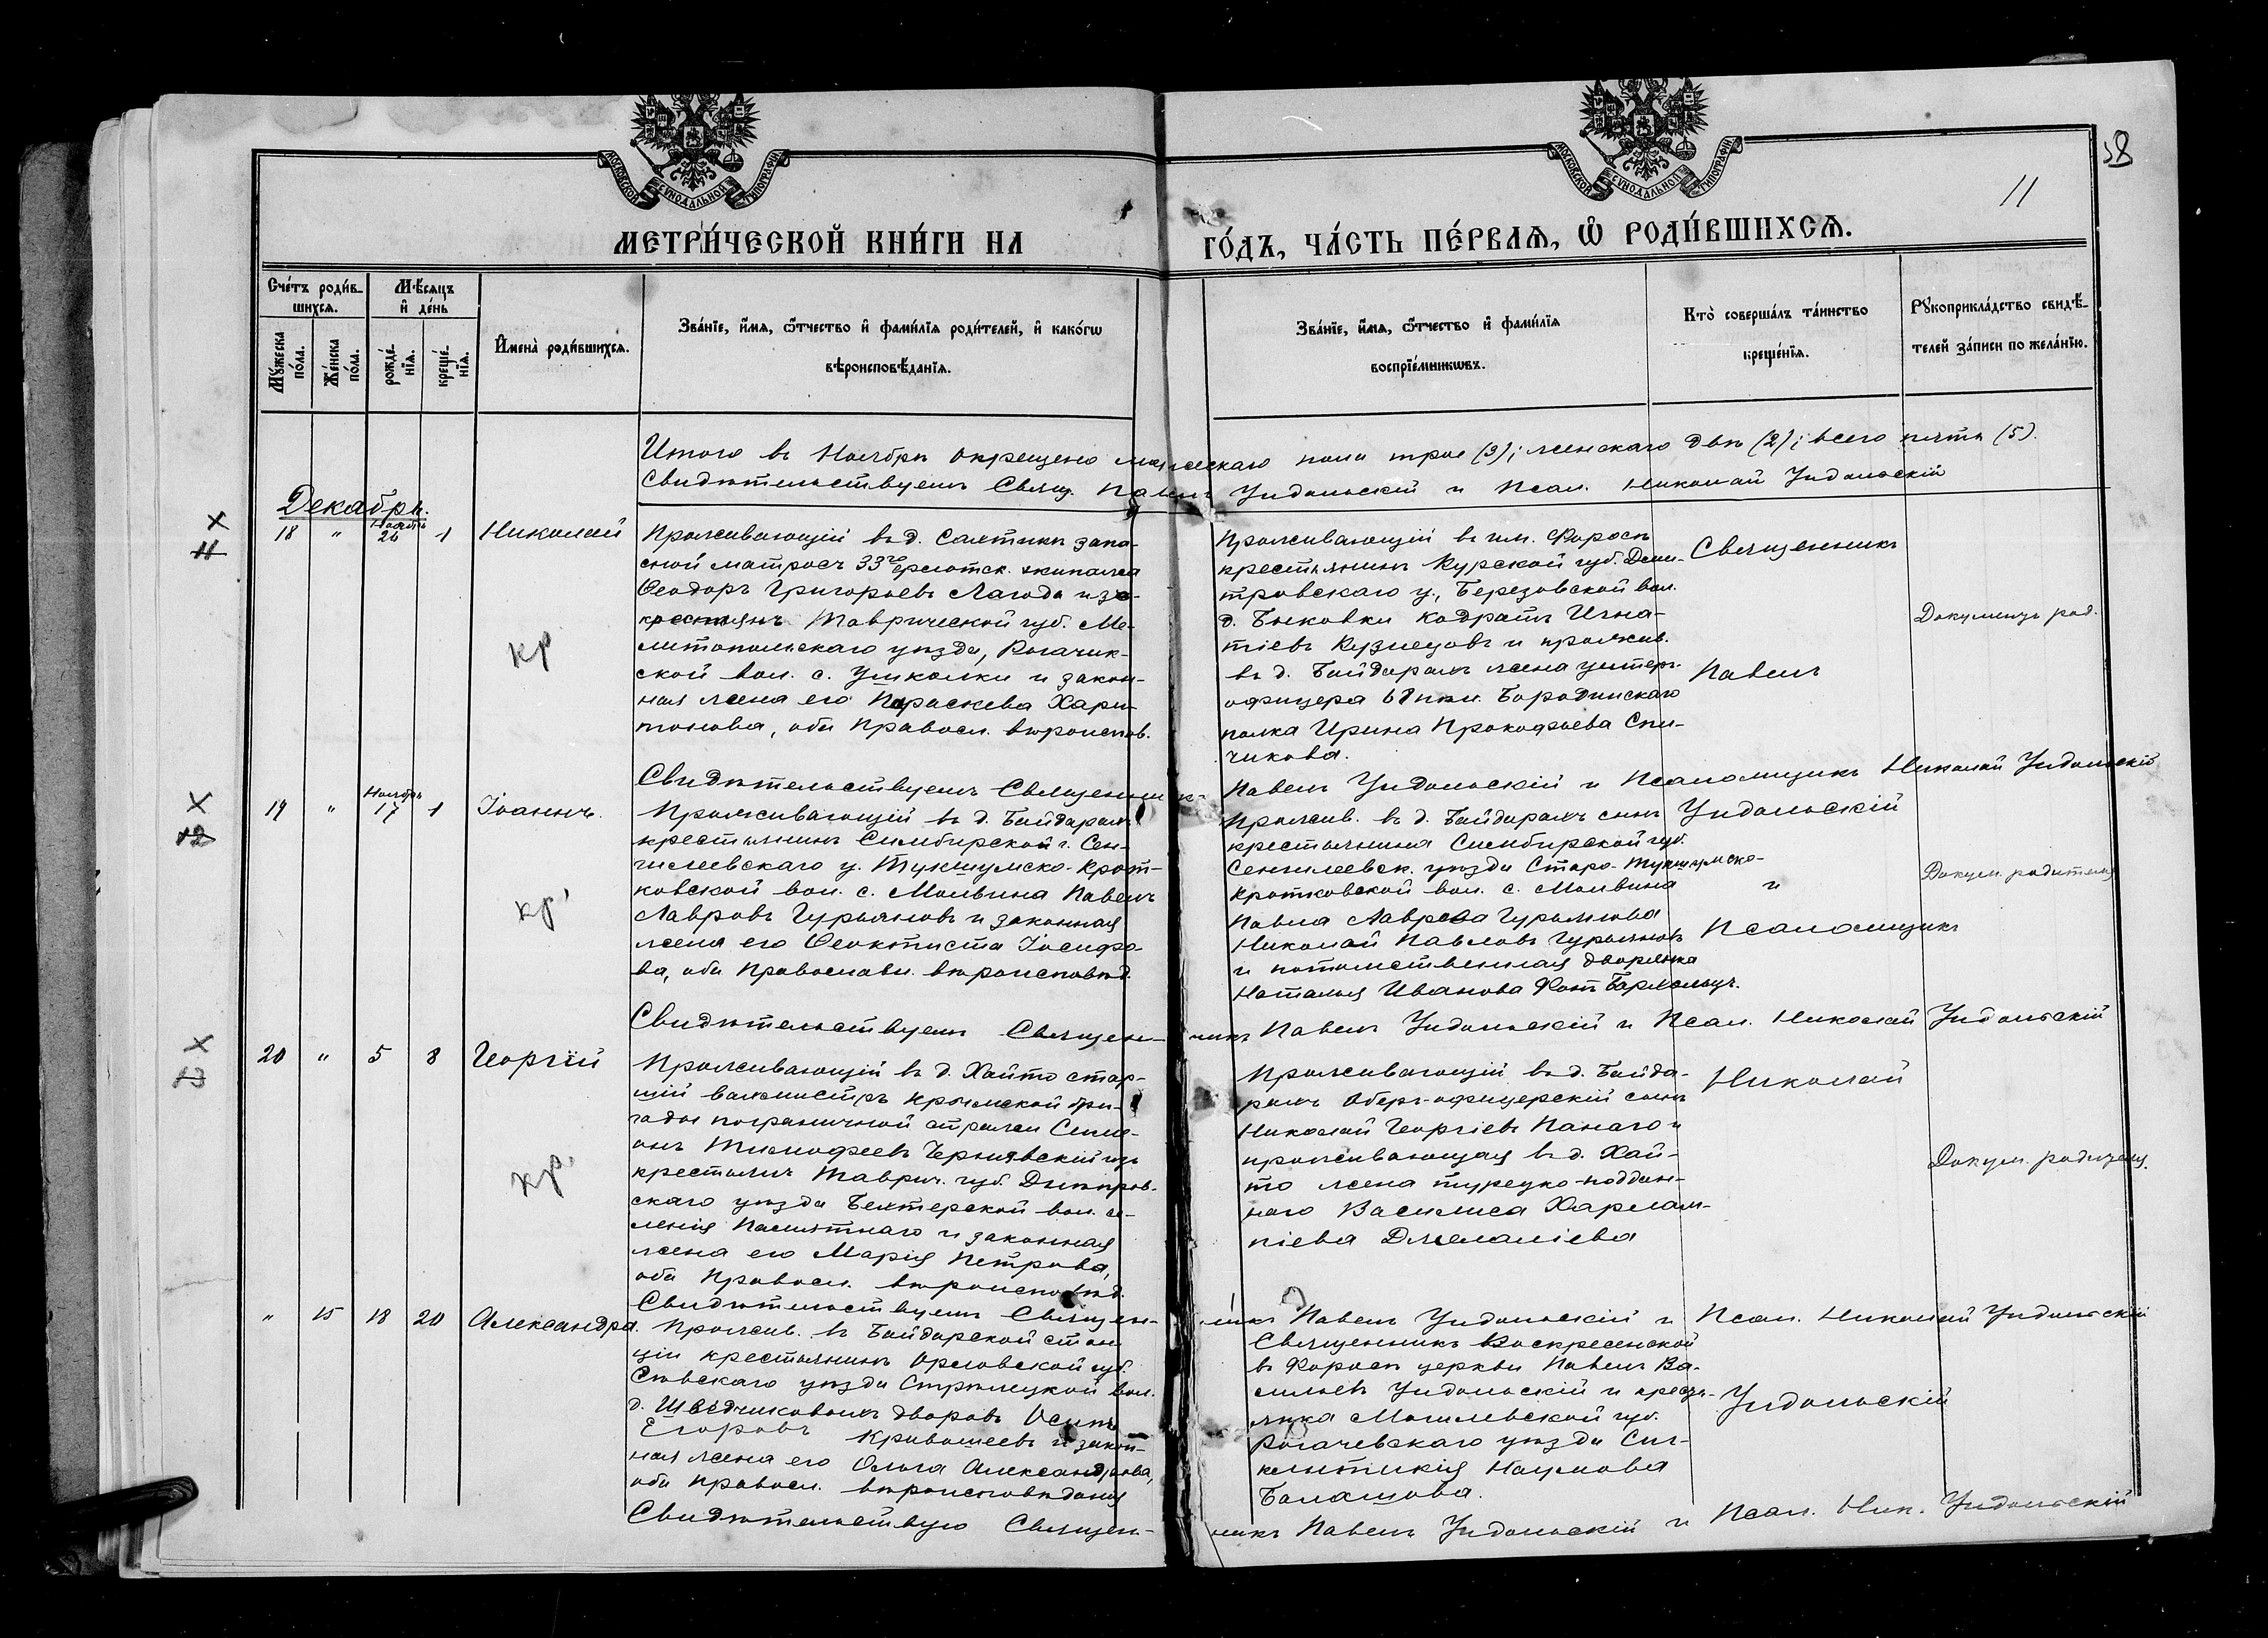 МОСКОВСКОЙ СУНОДАЛЬНОЙ ТИПОГРАФІИ
МОСКОВСКОЙ СУНОДАЛЬНОЙ ТИПОГРАФІИ
58
11
МЕТРИ́ЧЕСКОЙ КНИ́ГИ НА ГО́ДЪ, ЧА́СТЬ ПЕ́РВАЯ, Ѡ РОДИ́ВШИХСЯ.
Сче́тъ роди́в-
шихся.
Мѣ́сяцъ
и де́нь
Мꙋ́жеска
по́ла.
Же́нска
по́ла.
рожде́-
нїя.
креще́-
нїя.
Имена̀ роди́вшихся.
Зва́нїе, и́мя, ѻ́тчество и фами́лїя роди́телей, и како́гѡ
вѣроисповѣ́данїя.
Зва́нїе, и́мя, ѻ́тчество и фами́лїя
воспрїе́мникѡвъ.
Кто̀ соверша́лъ та́инство
креще́нїя.
Рꙋкоприкла́дство свидѣ́-
телей за́писи по жела́нїю.
Итого въ Ноябрѣ окрещено мужескаго пола трое (3); женскаго двѣ (2); всего пять (5).
Свидѣтельствуемъ Свящ. Павелъ Ундольскій и Псал. Николай Ундольскій
Декабрь.
11
18 " Ноябрь 26 1 Николай
кр
Проживающій въ д. Сахтикъ запа-
сной матросъ 33го флотск. экипажа
Ѳеодоръ Григорьевъ Лагода изъ
крестьянъ Таврической губ. Ме-
литопольскаго уѣзда, Рогачик-
ской вол. с. Ушколки и закон-
ная жена его Параскева Хари-
тонова, оба Правосл. вѣроиспов.
Проживающій въ им. Форосъ
крестьянинъ Курской губ. Дми-
тровскаго у., Березовской вол.
д. Быковки Кодратъ Игна-
тіевъ Кузнецовъ и прожив.
въ д. Байдарахъ жена унтеръ-
офицера 68 пѣх. Бородинскаго
полка Ирина Прокофьева Спи-
чикова.
Священникъ
Павелъ
Документъ род.
Свидѣтельствуемъ Священникъ Павелъ Ундольскій и Псаломщикъ Николай Ундольскій
12
19 " Ноябрь 17 1 Іоаннъ.
кр
Проживающій въ д. Байдарахъ
крестьянинъ Симбирской г. Сен-
гилеевскаго у. Тукшумско-Крот-
ковской вол. с. Мольвина Павелъ
Лавровъ Гурьяновъ и законная
жена его Ѳеоктиста Іосифо-
ва, оба Православн. вѣроисповѣд.
Прожив. въ д. Байдарахъ сынъ
крестьянина Симбирской губ.
Сенгилеевск. уѣзда Старо-Тукшумско-
Кротковской вол. с. Молвина
Павла Лаврова Гурьянова
Николай Павловъ Гурьяновъ
и потомственная дворянка
Наталья Иванова Фонъ Бархольцъ.
Ундольскій
и
Псаломщикъ
Докум. родителя
Свидѣтельствуемъ Священникъ Павелъ Ундольскій и Псал. Николай Ундольскій
13
20 " 5 8 Георгій
кр.
Проживающій въ д. Хайто стар-
шій вахмистръ Крымской бри-
гады пограничной стражи Симе-
онъ Тимофеевъ Чернявскій изъ
крестьянъ Таврич. губ. Днѣпров-
скаго уѣзда Бехтерской вол. се-
ленія Памятнаго и законная
жена его Марія Петрова,
оба Правосл. вѣроисповѣд.
Проживающій въ д. Байда-
рахъ Оберъ-офицерскій сынъ
Николай Георгіевъ Панаго и
проживающая въ д. Хай-
то жена турецко-поддан-
наго Василиса Харлам-
піева Джеламіева
Николай
Докум. родителя.
Свидѣтельствуемъ Священникъ Павелъ Ундольскій и Псал. Николай Ундольскій
" 15 18 20 Александра.
Прожив. въ Байдарской стан-
ціи крестьянинъ Орловской губ.
Сѣвскаго уѣзда Стрѣлецкой вол.
д. Шведчиковыхъ дворовъ Осипъ
Егоровъ Кривошеевъ и закон-
ная жена его Ольга Александрова,
оба правосл. вѣроисповѣданія
Священникъ Воскресенской
въ Форосѣ церкви Павелъ Ва-
сильевъ Ундольскій и крестья-
янка Могилевской губ.
Рогачевскаго уѣзда Син-
клитикія Наумова
Балашова.
Ундольскій
Свидѣтельствую Священникъ Павелъ Ундольскій и Псал. Ник. Ундольскій